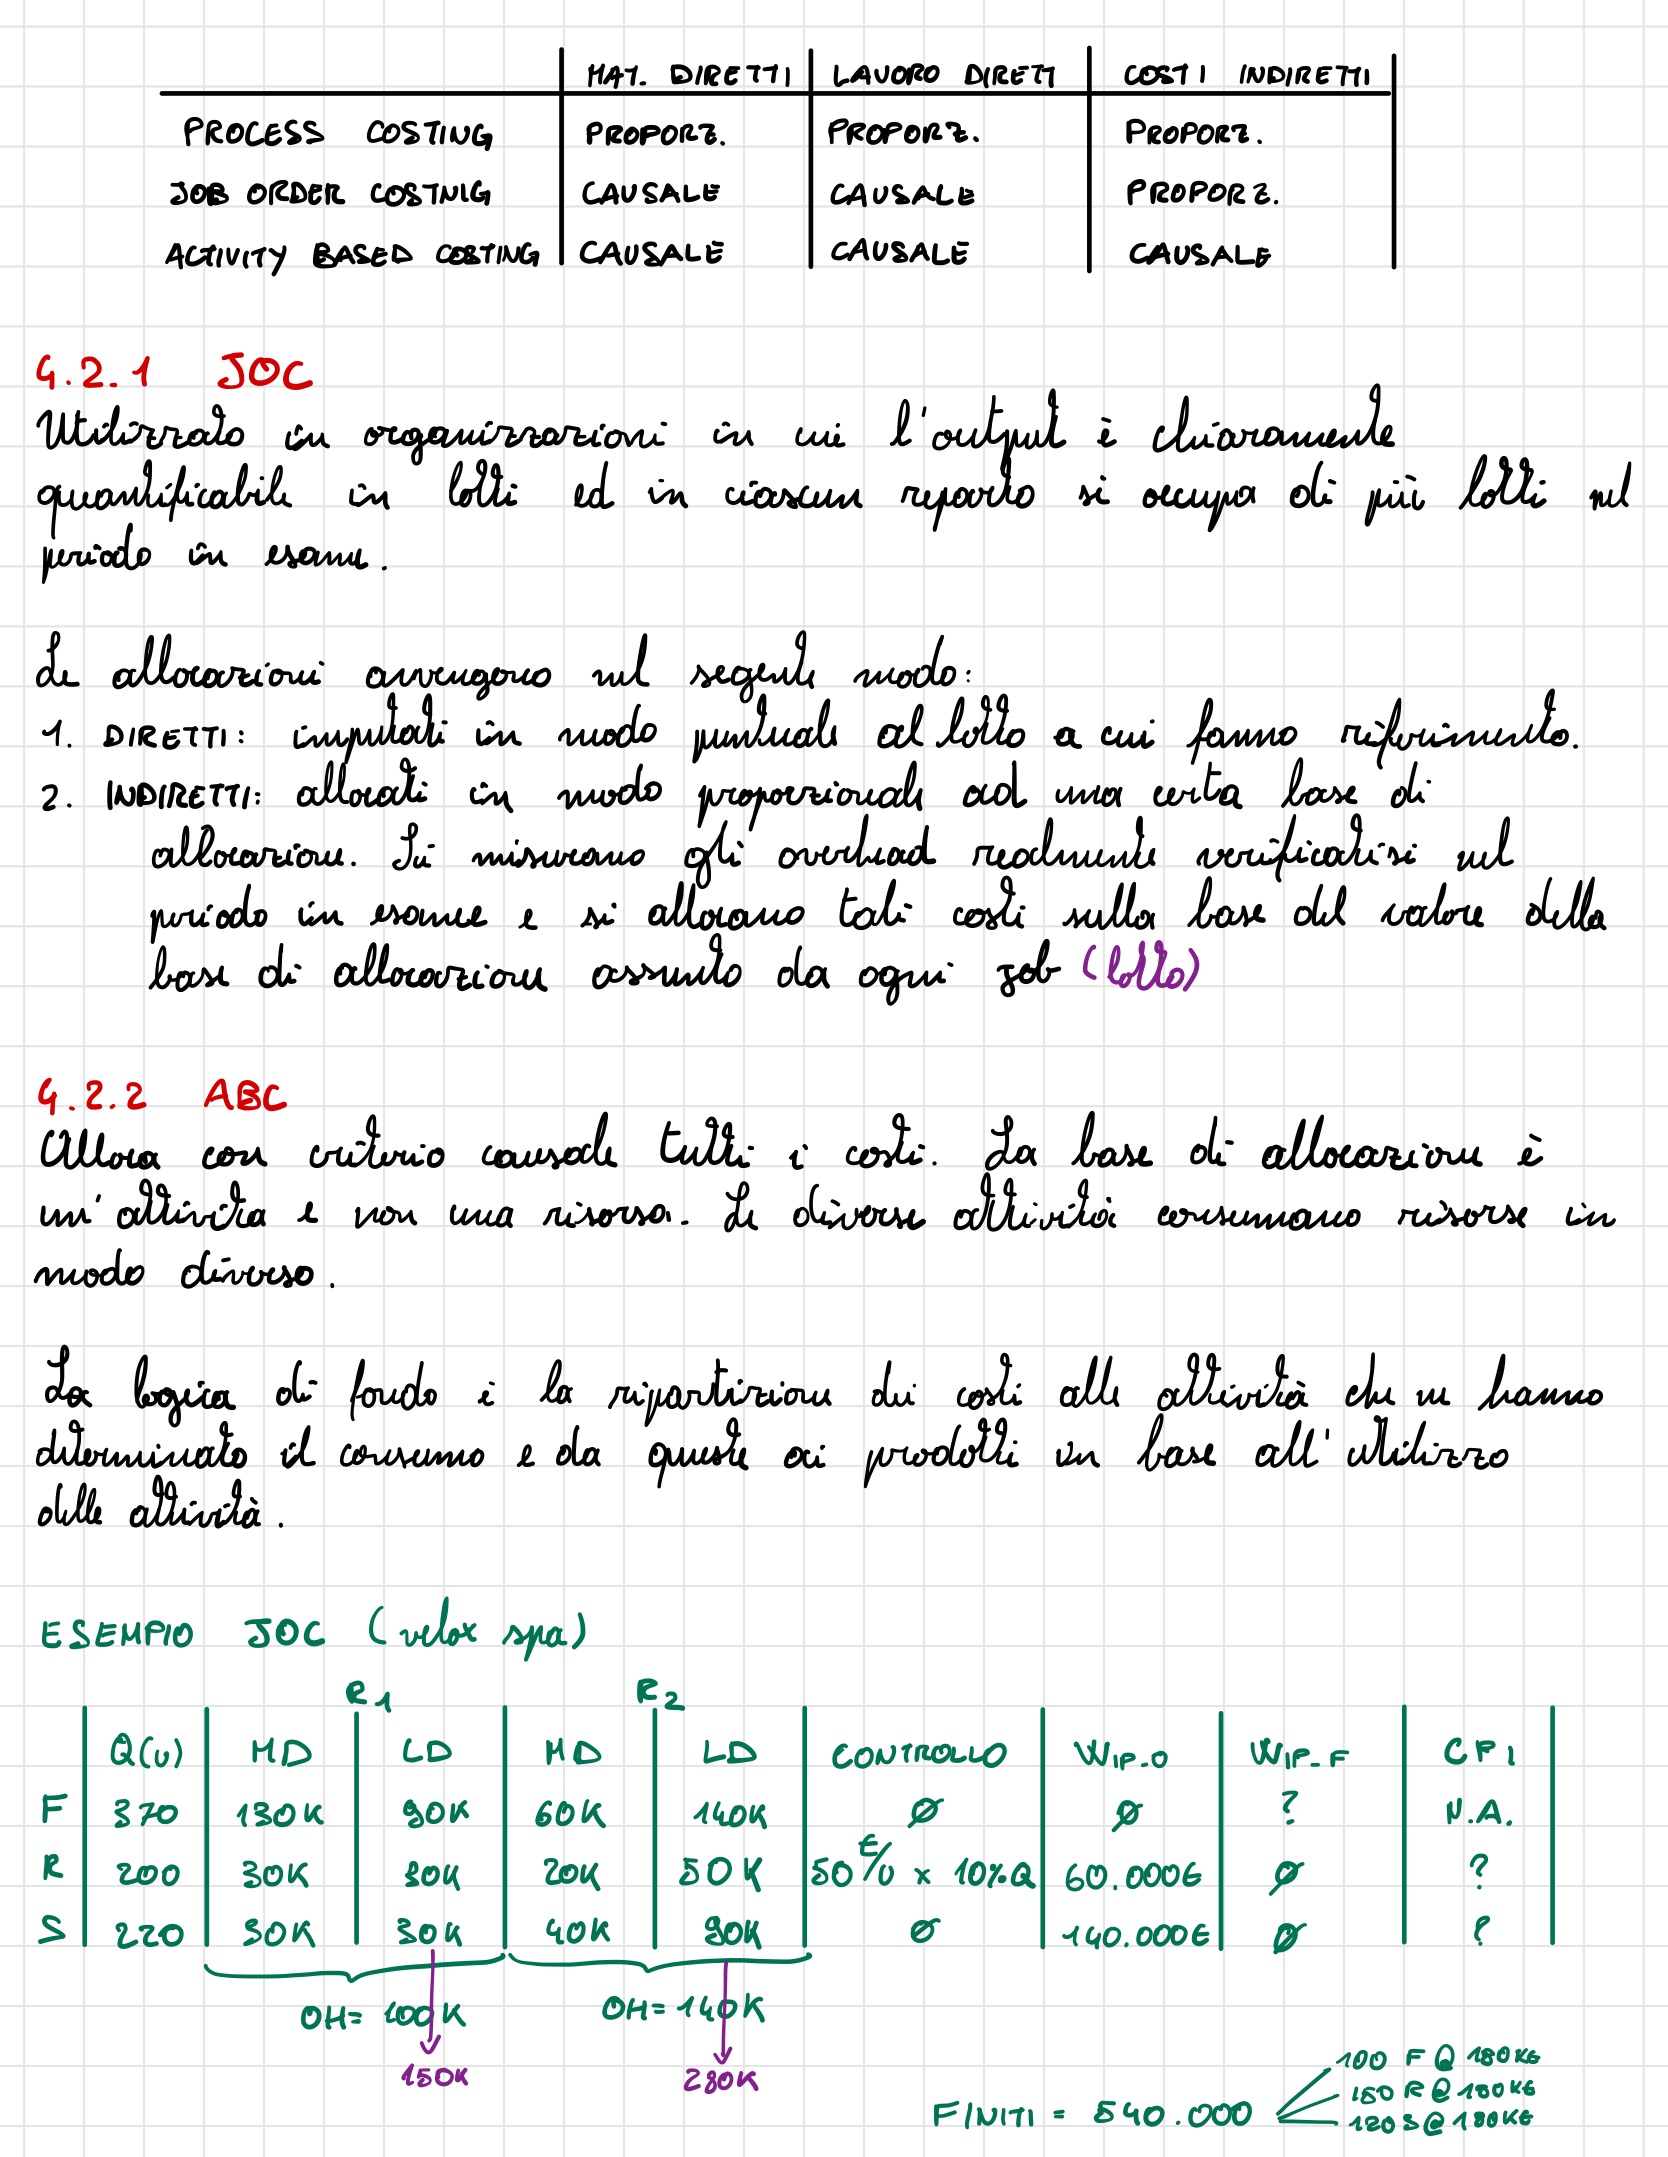 MAT. DIRETTI LAVORO DIRETT COSTI INDIRETTI
PROCESS COSTING PROPORZ. PROPORZ. PROPORZ.
JOB ORDER COSTNIG CAUSALE CAUSALE PROPORZ.
ACTIVITY BASED COSTING CAUSALE CAUSALE CAUSALE
4.2.1 JOC
Utilizzato in organizzazioni in cui l'output è chiaramente
quantificabile in lotti ed in ciascun reparto si occupa di più lotti nel
periodo in esame.
Le allocazioni avvengono nel segente modo:
1. DIRETTI: imputati in modo puntuale al lotto a cui fanno riferimento.
2. INDIRETTI: allocati in modo proporzionale ad una certa base di
allocazione. Si misurano gli overhead realmente verificatisi nel
periodo in esame e si allocano tali costi sulla base del valore della
base di allocazione assunto da ogni job (lotto)
4.2.2 ABC
Alloca con criterio causale tutti i costi. La base di allocazione è
un'attività e non una risorsa. Le diverse attività consumano risorse in
modo diverso.
La logica di fondo è la ripartizione dei costi alle attività che ne hanno
determinato il consumo e da queste ai prodotti in base all'utilizzo
delle attività.
ESEMPIO JOC (velox spa)
R1 R2
Q(u) MD LD MD LD CONTROLLO WIP-0 WIP-F CFI
F 370 130K 90K 60K 140K Ø Ø ? N.A.
R 200 30K 30K 20K 50K 50€/u x 10%Q 60.000€ Ø ?
S 220 30K 30K 40K 90K Ø 140.000€ Ø ?
OH= 100K OH= 140K
150K 280K
100 F @ 180K€
150 R @ 180K€
FINITI = 540.000
120 S @ 180K€